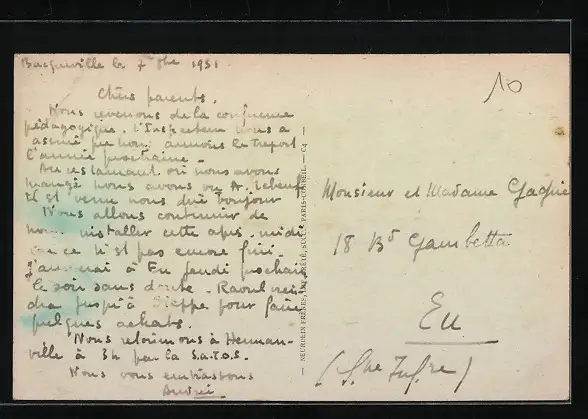 Bacqueville le 7 bre 1931
Chers parents,
Nous revenons de la conférence
pédagogique. L'Inspecteur nous a
assuré que nous aurions le Treport
l'année prochaine.
Au restaurant où nous avons
mangé nous avons vu A. Lebeuf
Il est venu nous dire bonjour
Nous allons continuer de
nous installer cette après-midi
car ce n'est pas encore fini.
J'arriverai à Eu jeudi prochain
le soir sans doute. Raoul vien
dra jusqu'à Dieppe pour faire
quelques achats.
Nous retournons à Herman-
ville à 3h par la S.A.T.O.S.
Nous vous embrassons
10
Monsieur et Madame
18 Bd Gambetta
Eu
(Sne Infre)
— NEURDEIN FRÈRES, SUCC. PARIS-CORBEIL. — C4 —